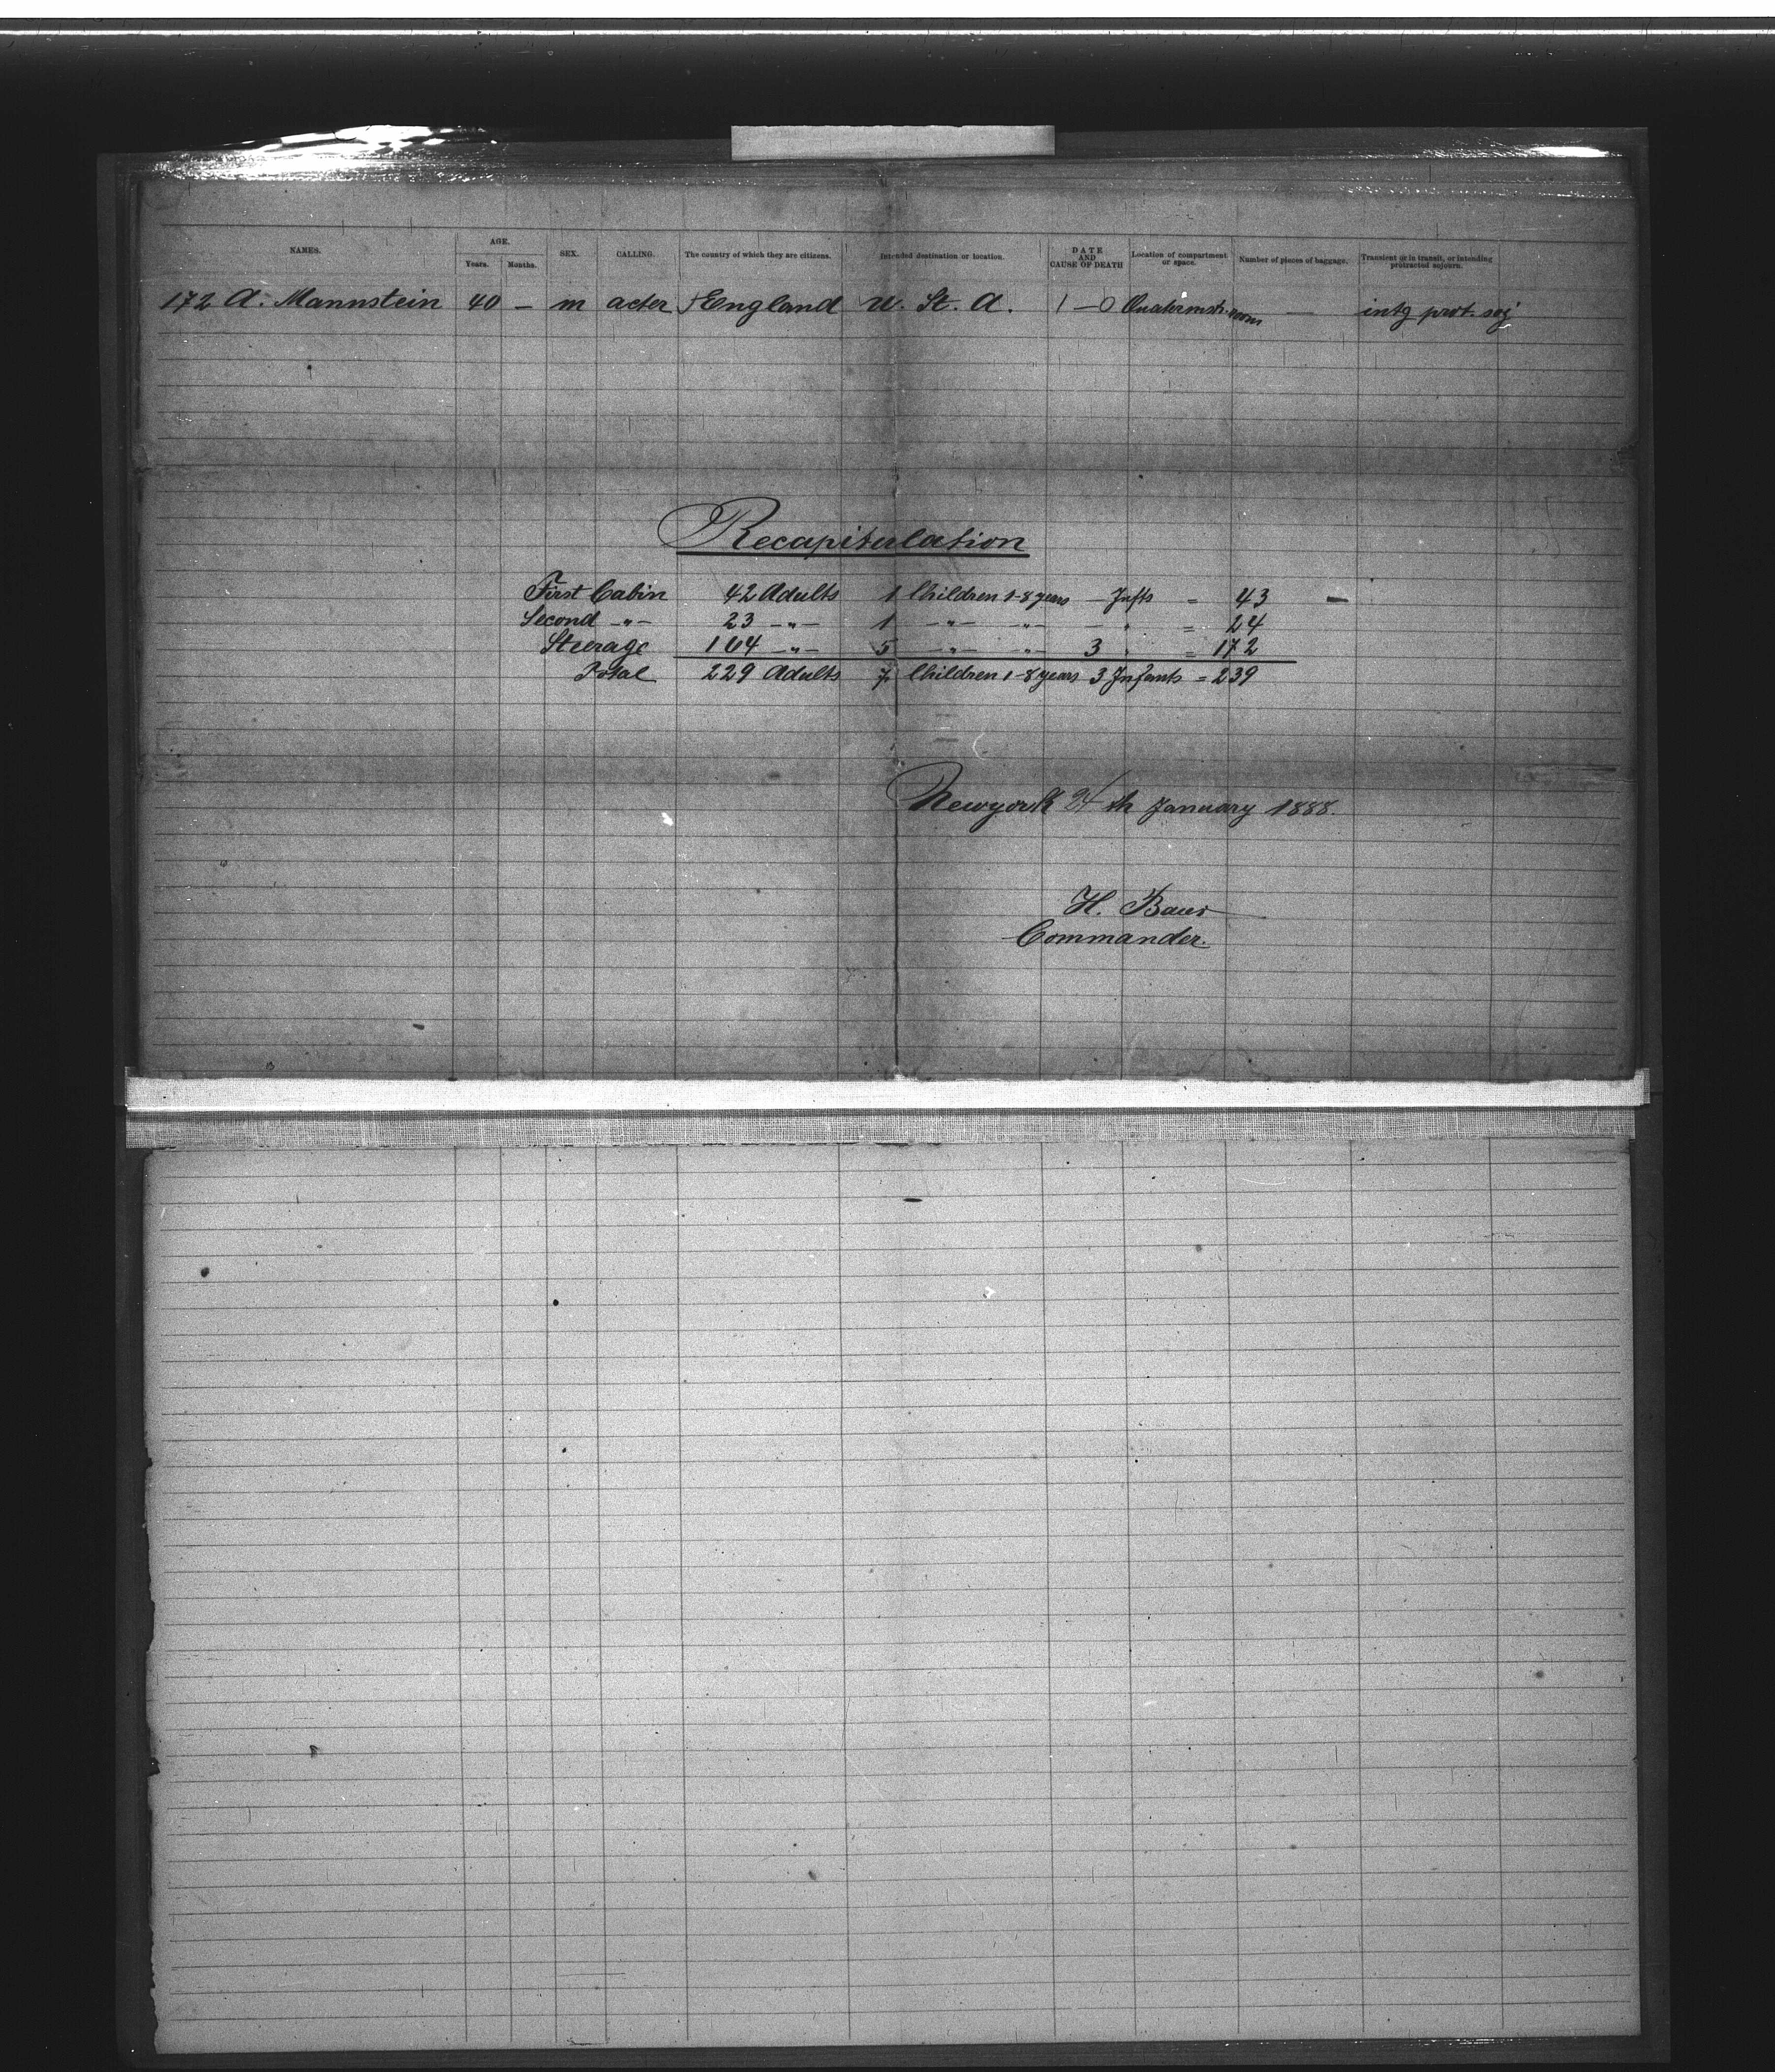 NAMES. AGE. Years. Months. SEX. CALLING. The country of which they are citizens. Intended destination or location. DATE AND CAUSE OF DEATH Location of compartment or space. Number of pieces of baggage. Transient or in transit, or intending protracted sojourn.
172 A. Mannstein 40 — m acter England U. St. A. 1 — 0 — intg prot. soj
Recapitulation
First Cabin 42 Adults 1 Children 1-8 years — Infts = 43 —
Second —"— 23 —"— 1 —"— —"— — " = 24
Steerage 164 —"— 5 —"— —"— 3 " = 172
Total 229 Adults 7 Children 1-8 years 3 Infants = 239
Newyork 24th January 1888.
H. Baur
Commander.